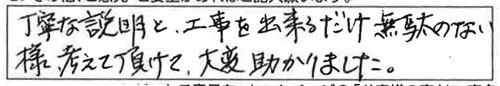 丁寧な説明と、工事を出来るだけ無駄のない
様に考えて頂けて、大変助かりました。